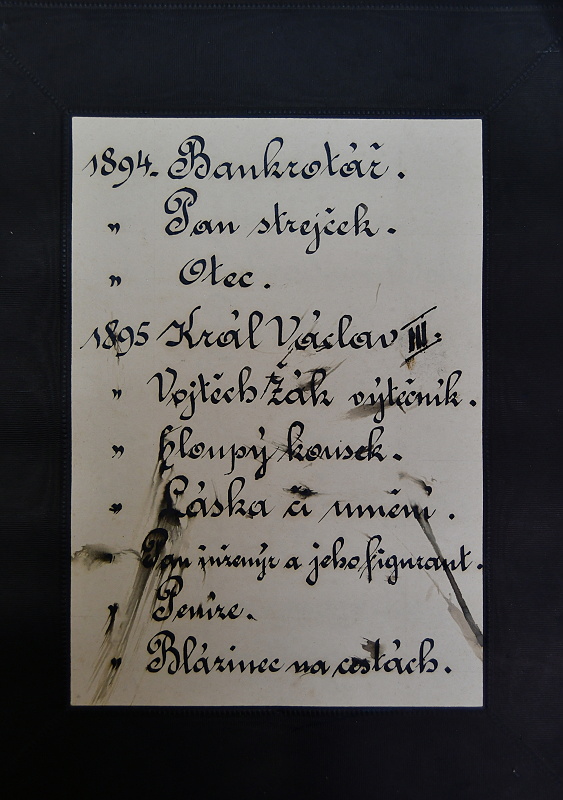 1894. Bankrotář.
" Pan strejček.
" Otec.
1895 Král Václav III.
" Vojtěch Žák výtečník.
" Hloupý kousek.
" Láska či umění.
Pan inženýr a jeho figurant.
" Peníze.
" Blázinec na cestách.